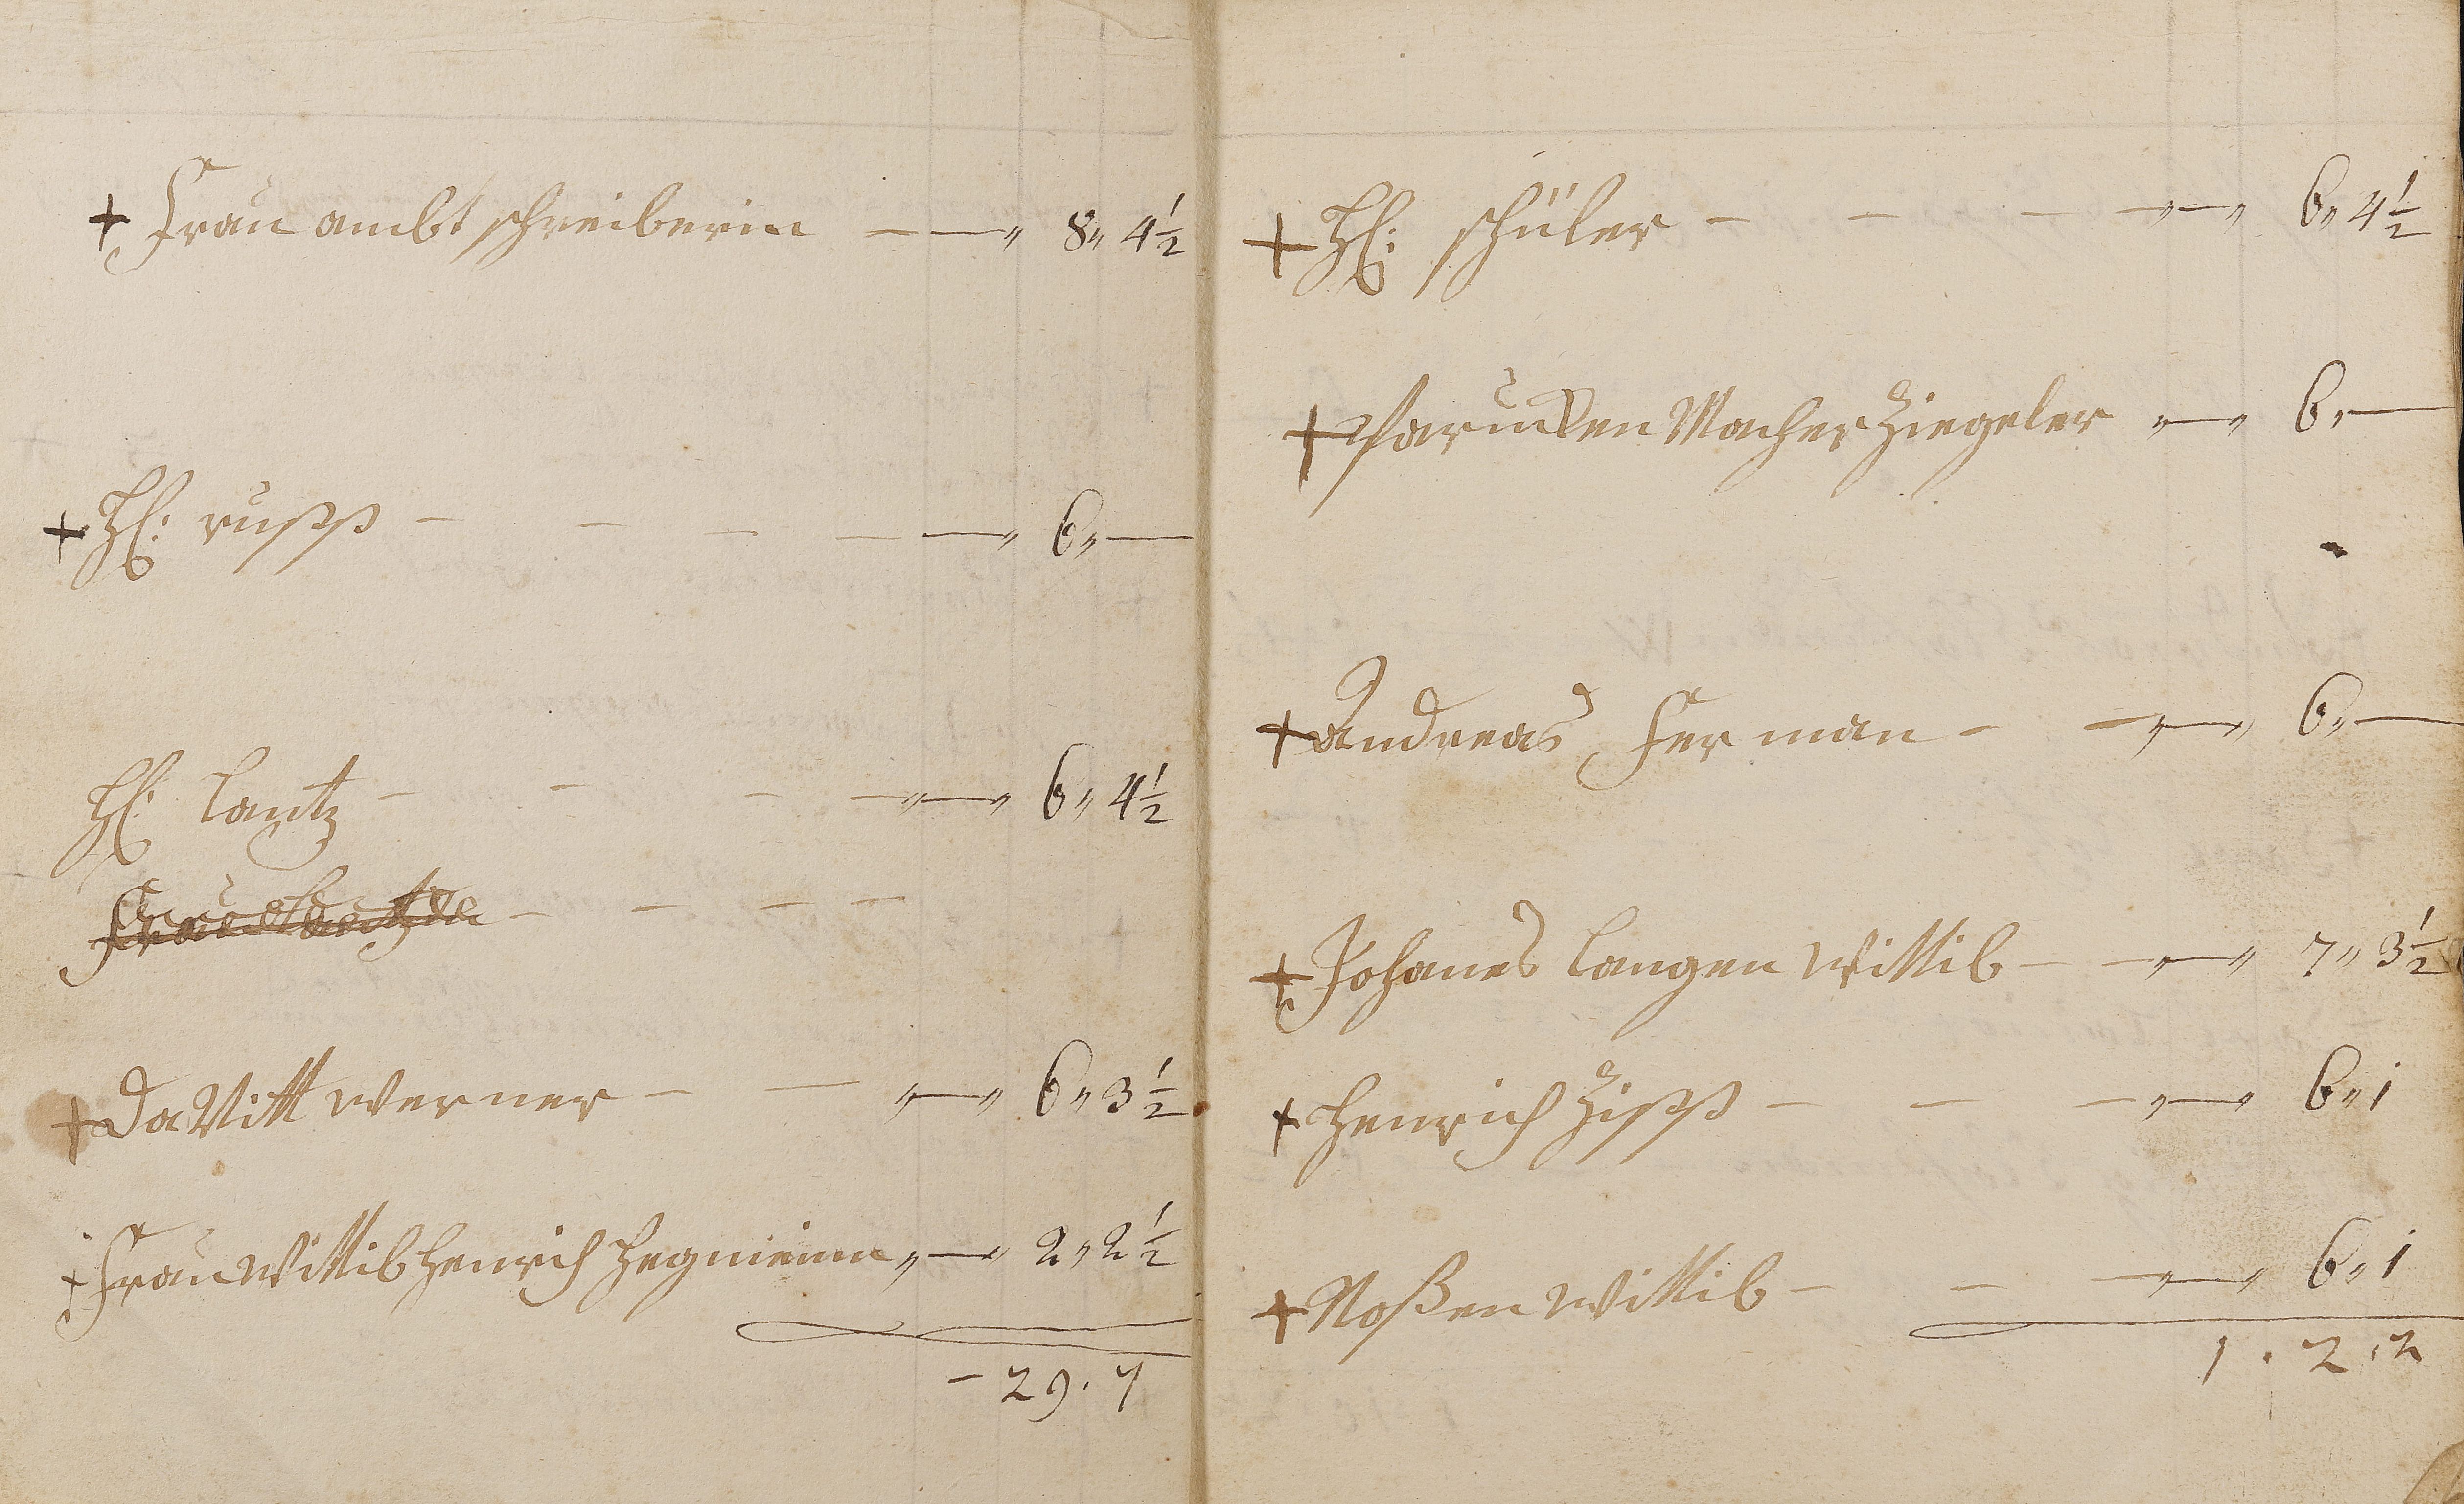 + Frau ambt schreiberin — — „ 8 „ 4 ½
+ H: russ — — — — — „ 6 „ —
H: Lantz — — — — „ — „ 6 „ 4 ½
— — — —
+ Da Vitt werner — — „ — „ 6 „ 3 ½
+ Frau Wittib Henrich „ — „ 2 „ 2 ½
— 29 . 7
+ H: schüler — — — — „ — „ 6 „ 4 ½
+ Parucken Macher Ziegeler „ — „ 6 „ —
+ Andreas Ferman — — „ — „ 6 „ —
+ Johanes Langen Wittib — — „ — „ 7 „ 3 ½
+ Henrich Ziss — — — „ — „ 6 „ 1
+ Noßen Wittib — — — „ — „ 6 „ 1
1 . 2 . 2